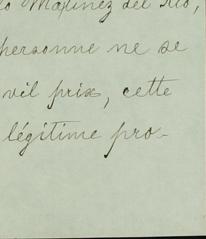 lo Martinez del Rio,
personne ne se
vil prix, cette
légitime pro-